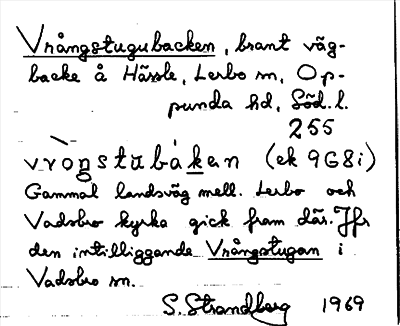 Vrångstugubacken, brant väg-
backe å Hässle, Lerbo sn, Op-
punda hd, Söd. l.
255
vròŋstɯbákan (ek 9G8i)
Gammal landsväg mell. Lerbo och
Vadsbro kyrka gick fram där. Jfr
den intilliggande Vrångstugan i
Vadsbro sn.
S. Strandberg 1969